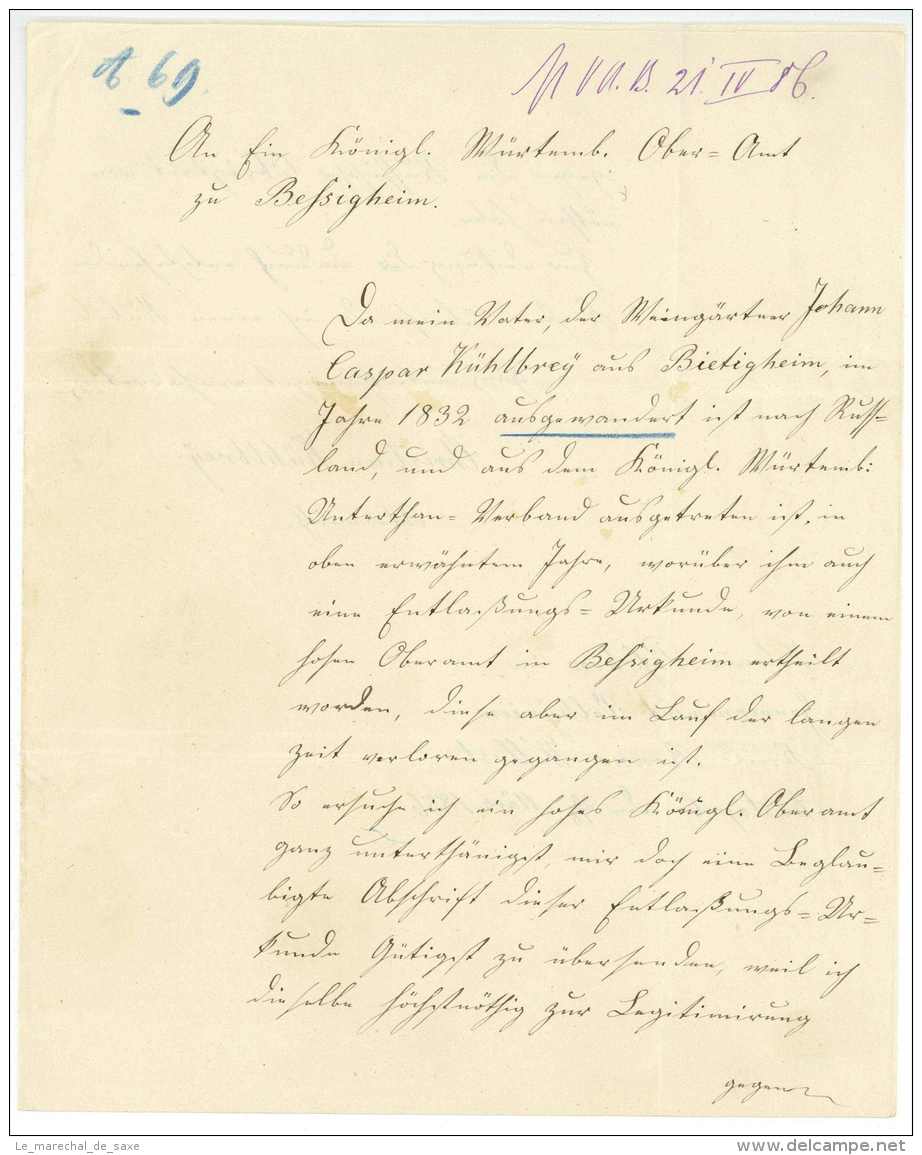 A. 69.
B. 21. IV 86.
An Ein Königl. Würtemb. Ober=Amt
zu Beßigheim.
Da mein Vater, der Weingärtner Johann
Caspar Kühlbrey aus Bietigheim, im
Jahre 1832 ausgewandert ist nach Russ=
land, und aus dem Königl. Würtemb:
Unterthan=Verband ausgetreten ist, in
oben erwähntem Jahre, worüber ihm auch
eine Entlaßungs=Urkunde, von einem
hohen Oberamt in Beßigheim ertheilt
worden, diese aber im Lauf der langen
Zeit verloren gegangen ist.
So ersuche ich ein hohes Königl. Oberamt
ganz unterthänigst, mir doch eine Beglau=
bigte Abschrift dieser Entlaßungs=Ur=
kunde Gütigst zu übersenden, weil ich
dieselbe höchstnöthig zur Legitimirung
gegen
Le_marechal_de_saxe
delcampe.net